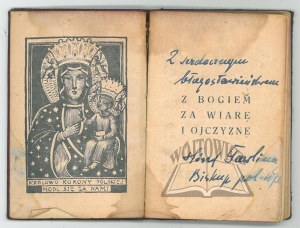 KRÓLOWO KORONY POLSKIEJ
MÓDL SIĘ ZA NAMI
Z serdecznym
błogosławieństwem
Z BOGIEM
ZA WIARĘ
I OJCZYZNĘ
Józef Gawlina
Biskup polowy